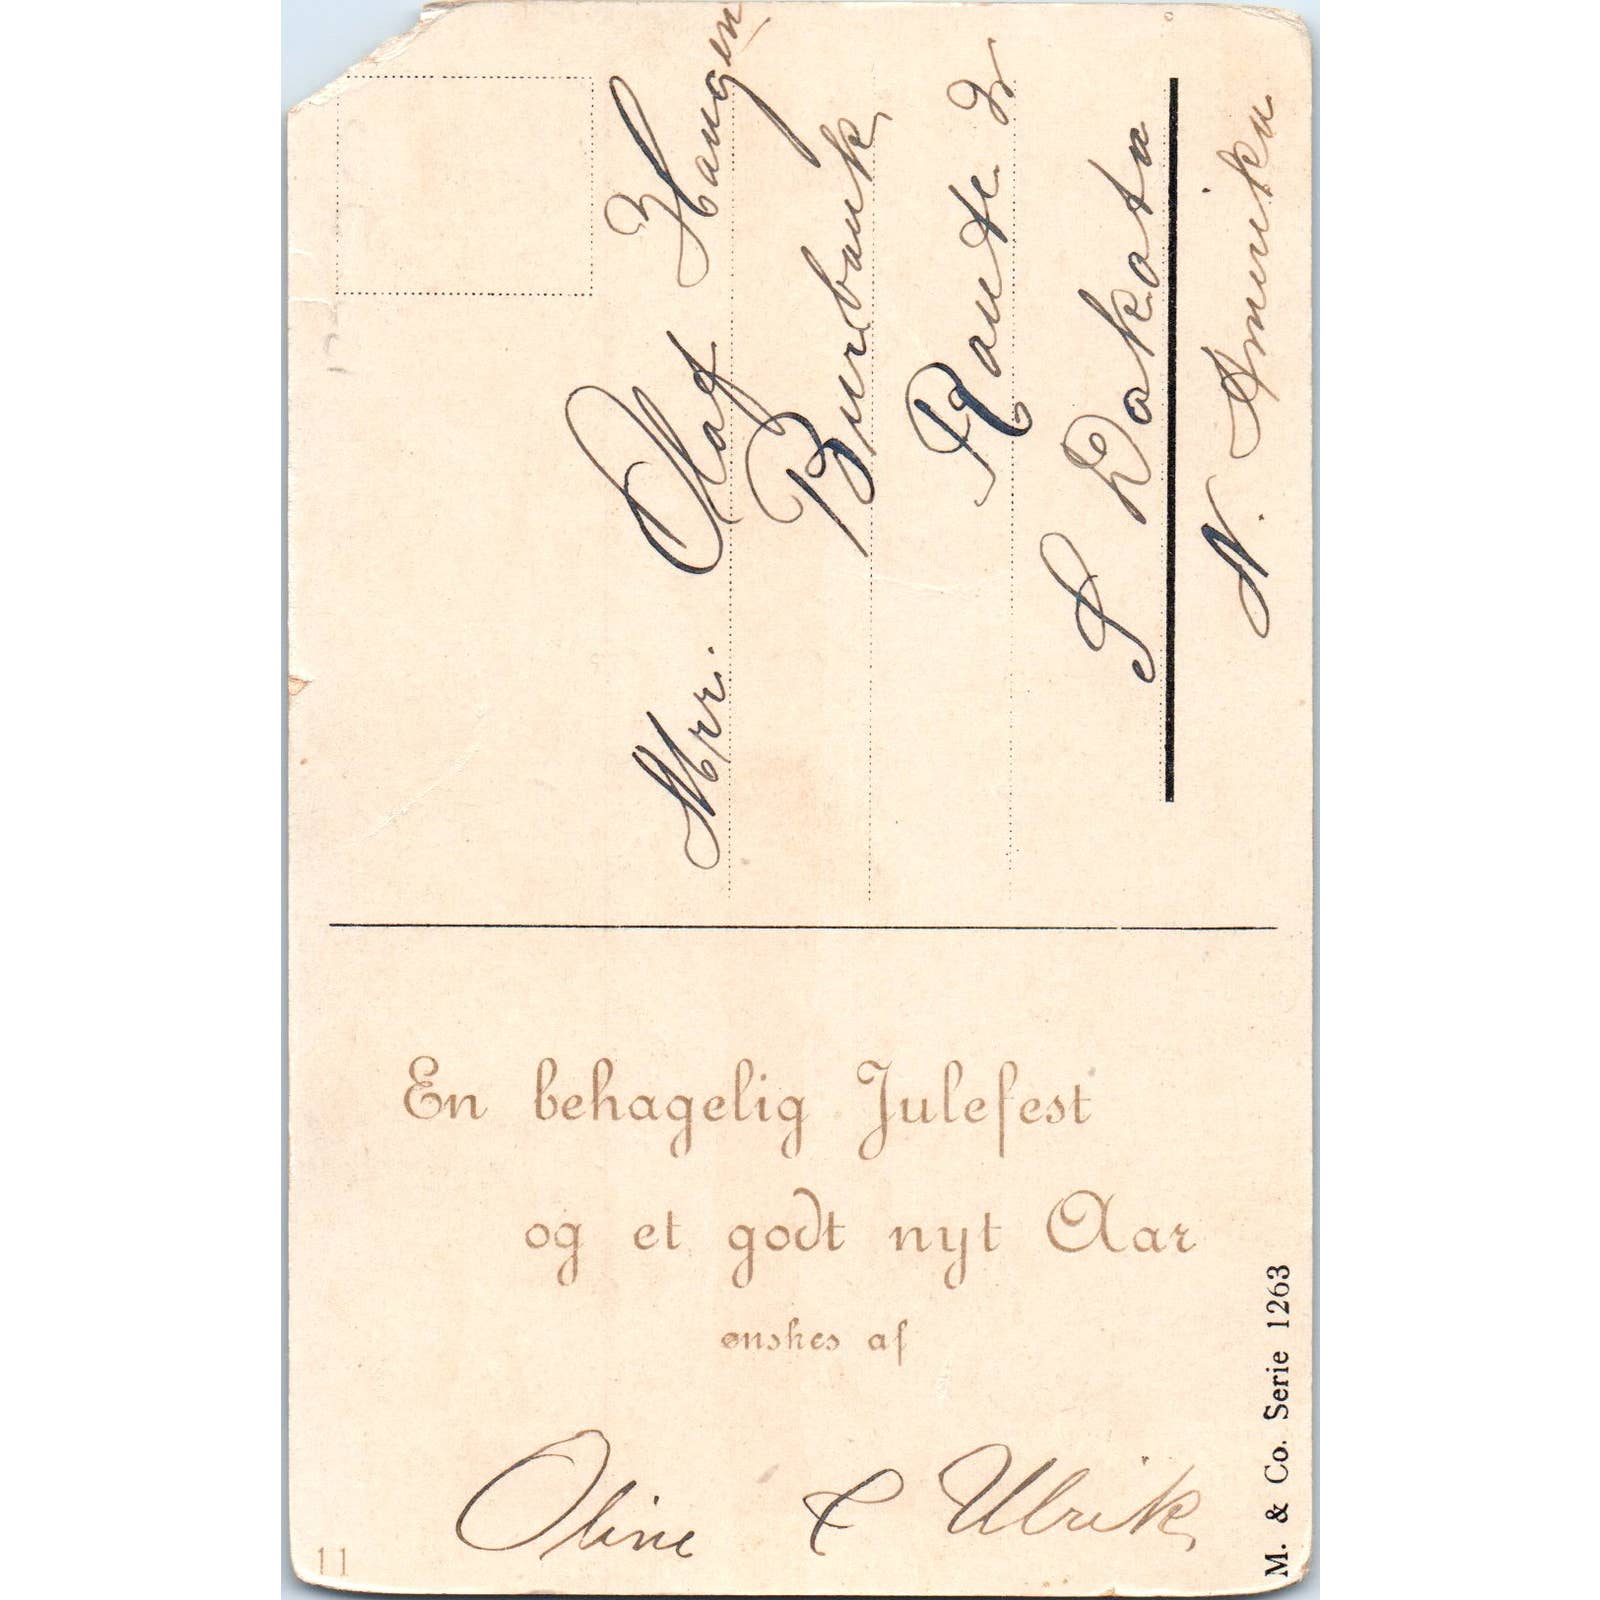 Mrr. Olaf Haugen
Burbank
Raute 2
S Dakota
N. Amerika
En behagelig Julefest
og et godt nyt Aar
ønskes af
Oline & Ulrik
M. & Co. Serie 1263
11